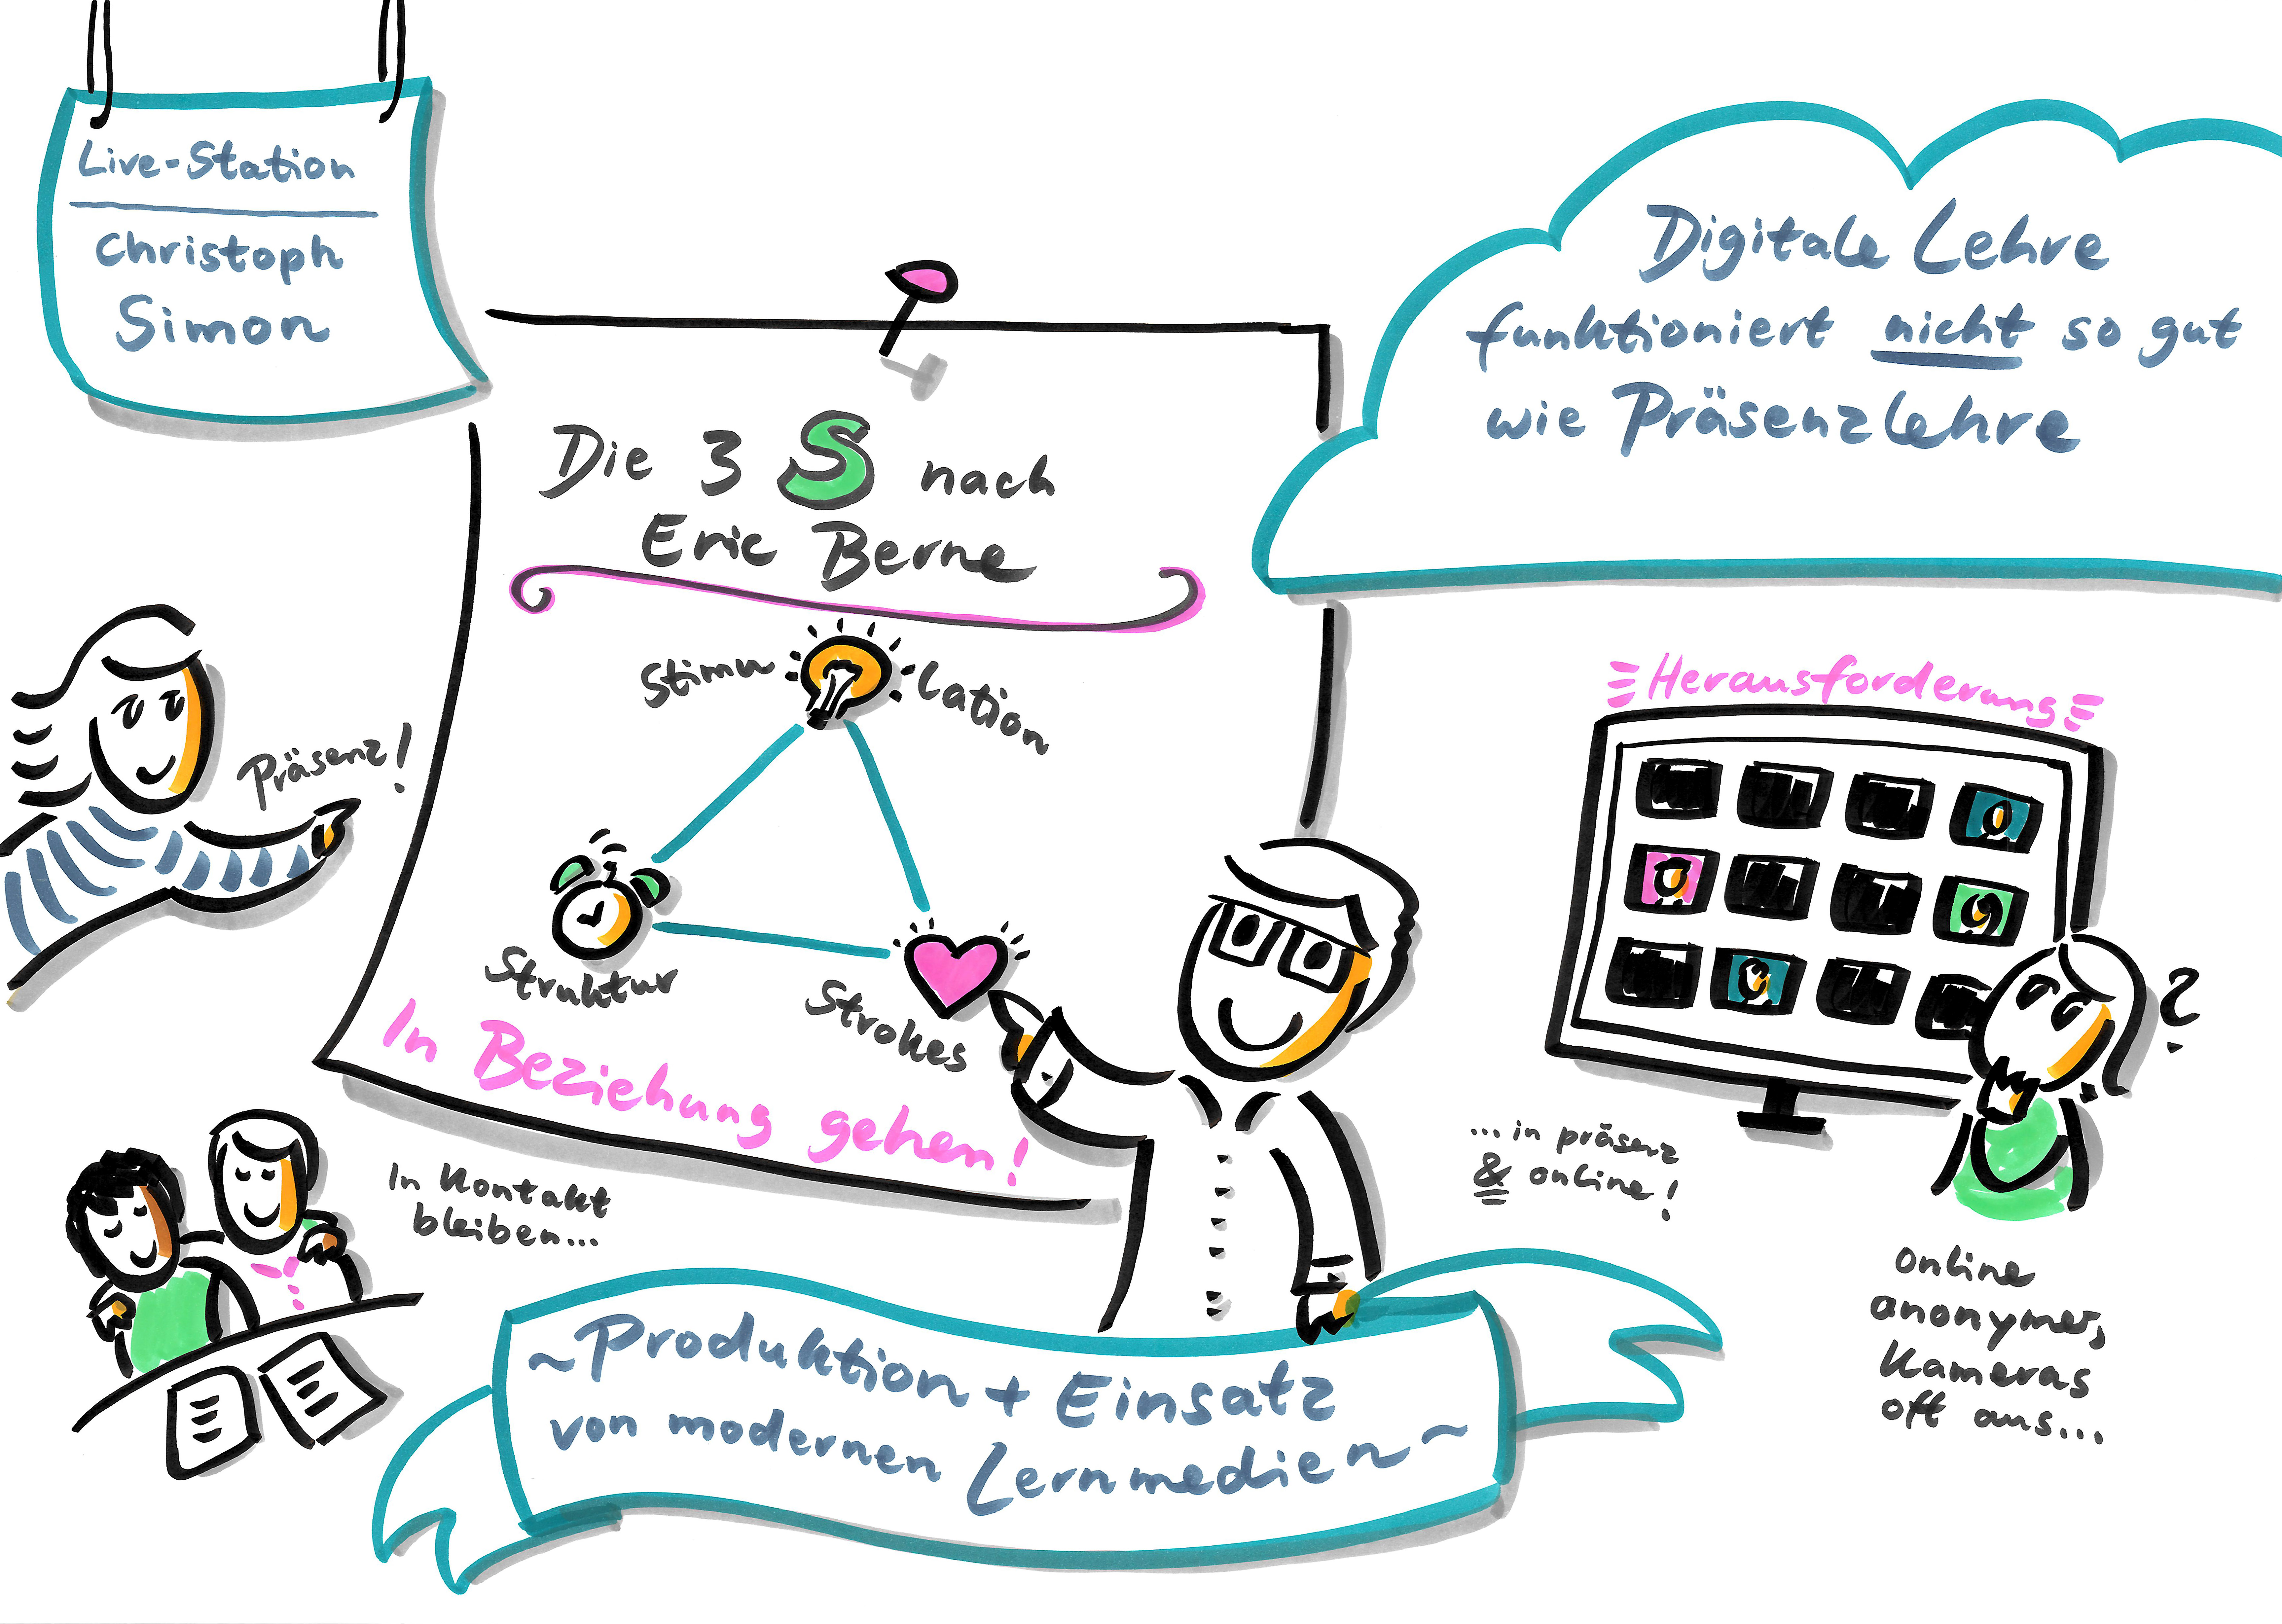 Live-Station
Christoph
Simon
Digitale Lehre
funktioniert nicht so gut
wie Präsenzlehre
Die 3 S nach
Eric Berne
Stimulation
Struktur
Strokes
In Beziehung gehen!
Präsenz!
≡Herausforderung≡
?
In Kontakt
bleiben...
...in präsenz
& online!
online
anonymer,
Kameras
oft aus...
~Produktion + Einsatz
von modernen Lernmedien~